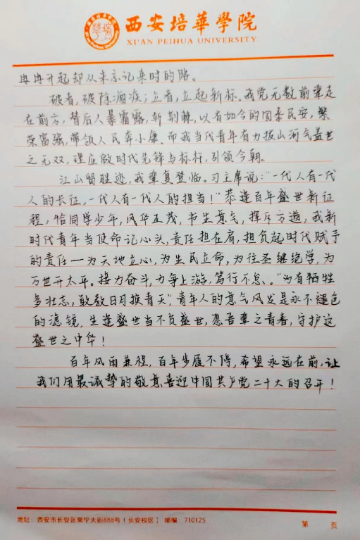 西安培華學院
XI'AN PEIHUA UNIVERSITY
冉冉升起却从未忘记来时的路。
破者,破除痼疾;立者,立起新标。我党无数前辈走
在前方,替后人摹富骆,斩荆棘,以有如今的国泰民安,繁
荣富强,带领人民奔小康。而我当代青年有力拔山河气盖世
之无双,理应做时代先锋与标杆,引领今朝。
江山留胜迹,我辈复登临。习主席说:“一代人有一
代人的长征,一代人有一代人的担当!”恭逢百年盛世新征
程,恰同学少年,风华正茂,书生意气,挥斥方遒,我新
时代青年当使命记心头,责任担在肩,担负起时代赋予
的责任——为天地立心,为生民立命,为往圣继绝学,为
万世开太平。接力奋斗,力争上游,笃行不怠、“为有牺牲
多壮志,敢教日月换青天”,青年人的意气风发是永不褪色
的滤镜,生逢盛世当不负盛世,愿吾辈之青春,守护这
盛世之中华!
百年风雨兼程,百年步履不停,希望永远在前,让
我们用最诚挚的敬意喜迎中国共产党二十大的召开!
地址:西安市长安区常宁大街888号(长安校区) 邮编:710125
第 页